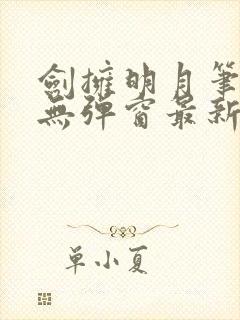 劍擁明月筆
無彈窗最新
單小夏